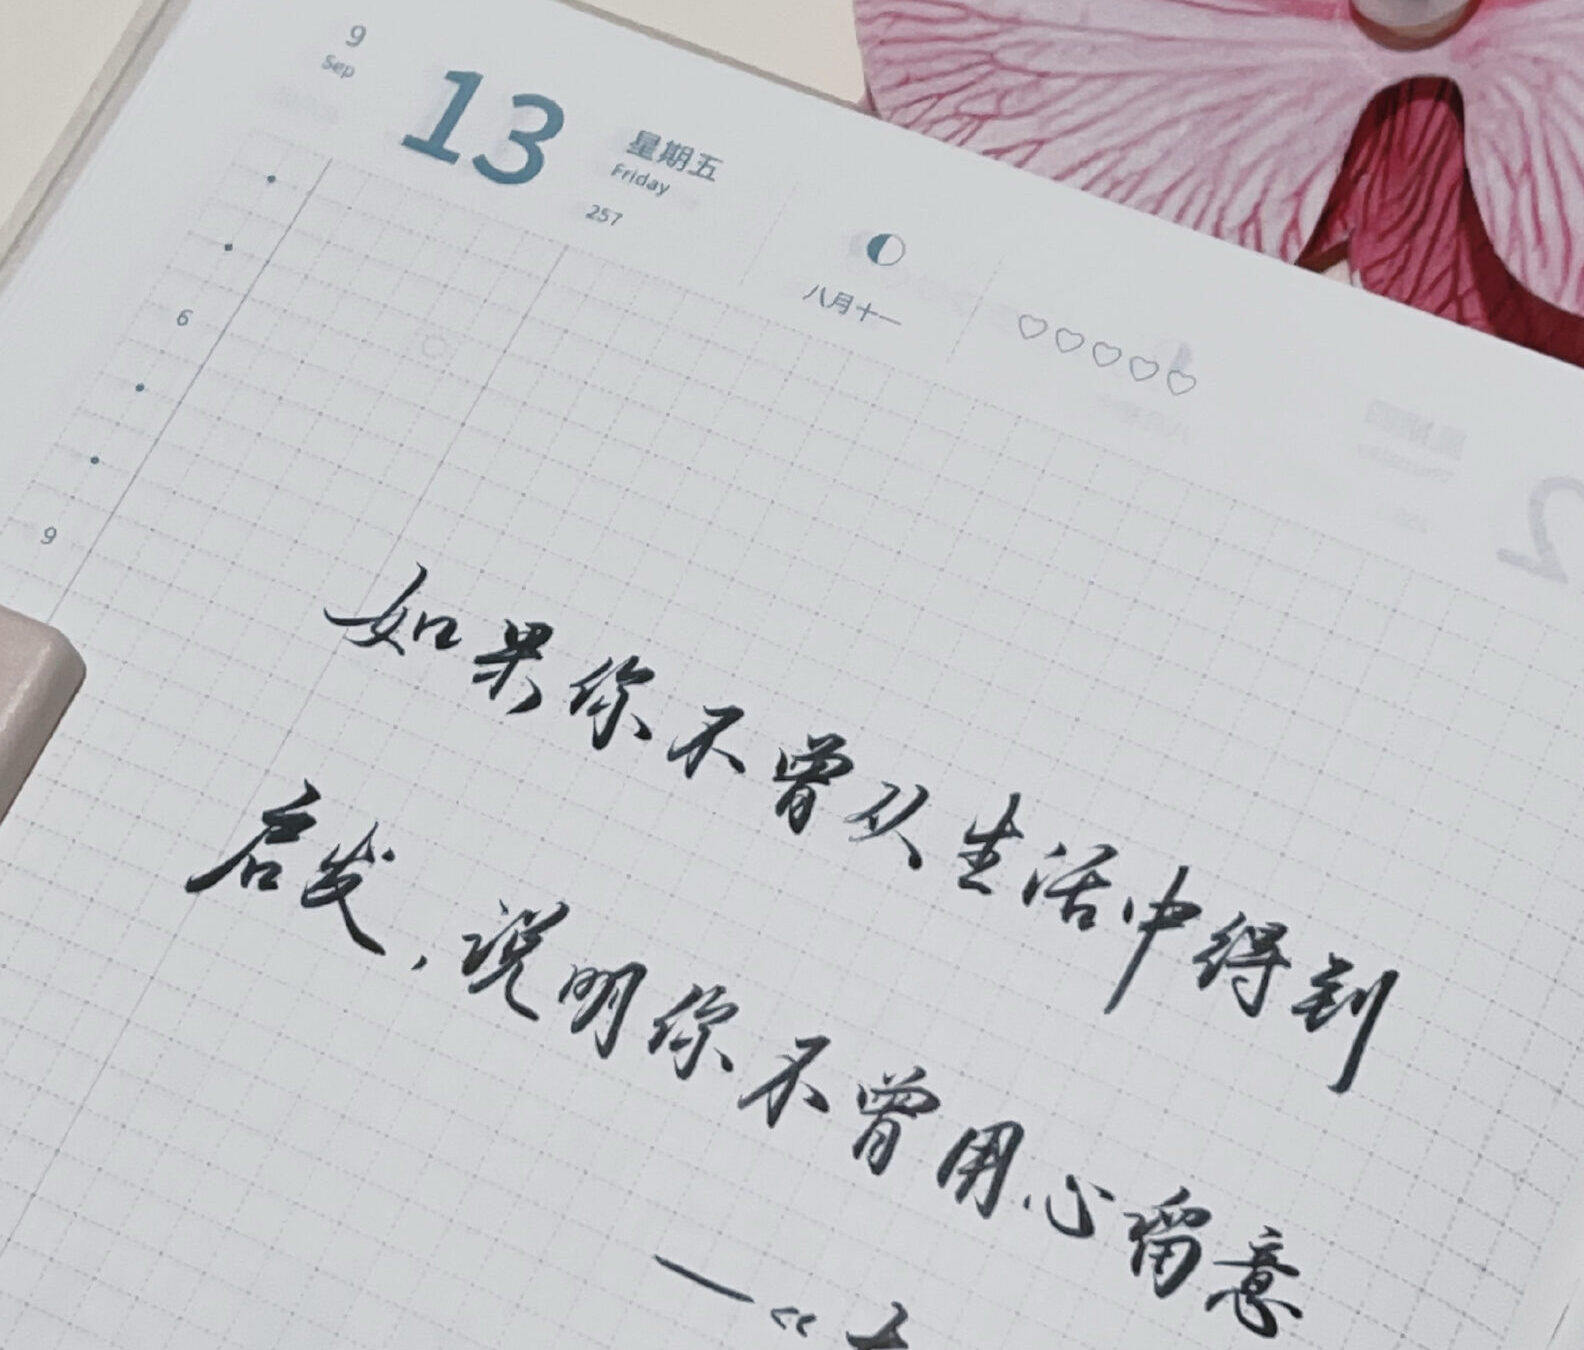 9
Sep
13
星期五
Friday
257
八月十一
6
9
如果你不曾从生活中得到
启发，说明你不曾用心留意
—《